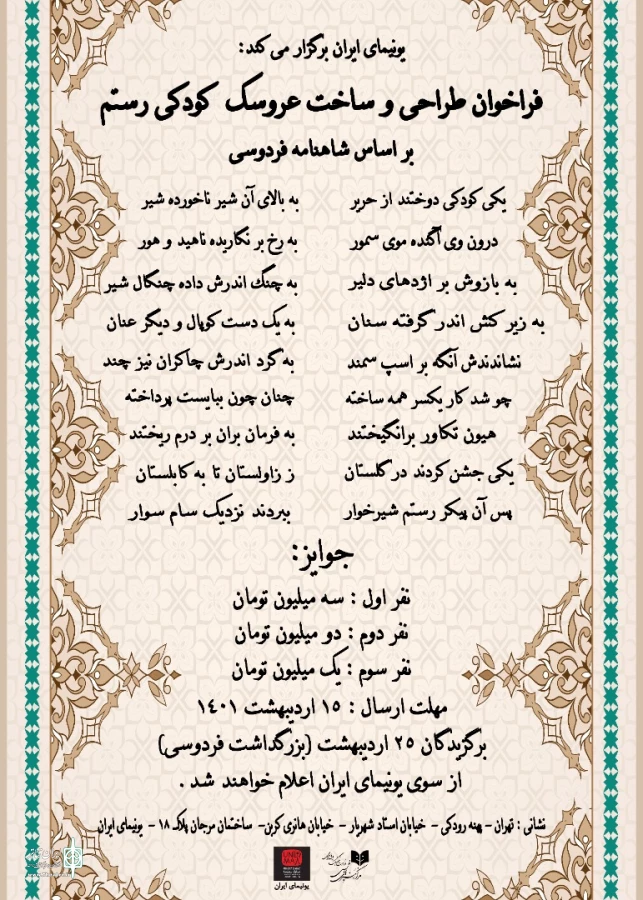 یونیمای ایران برگزار می کند:
فراخوان طراحی و ساخت عروسک کودکی رستم
بر اساس شاهنامه فردوسی
یکی کودکی دوختند از حریر به بالای آن شیر ناخورده شیر
درون وی آگنده موی سمور به رخ بر نگاریده ناهید و هور
به بازوش بر اژدهای دلیر به چنگ اندرش داده چنگال شیر
به زیر کش اندر گرفته سنان به یک دست کوپال و دیگر عنان
نشاندندش آنگه بر اسپ سمند به گرد اندرش چاکران نیز چند
چو شد کار یکسر همه ساخته چنان چون ببایست پرداخته
هیون تکاور برانگیختند به فرمان بران بر درم ریختند
یکی جشن کردند در گلستان ز زاولستان تا به کابلستان
پس آن پیکر رستم شیرخوار ببردند نزدیک سام سوار
جوایز:
نفر اول : سه میلیون تومان
نفر دوم : دو میلیون تومان
نفر سوم : یک میلیون تومان
مهلت ارسال : ۱۵ اردیبهشت ۱۴۰۱
برگزیدگان ۲۵ اردیبهشت (بزرگداشت فردوسی)
از سوی یونیمای ایران اعلام خواهند شد .
نشانی : تهران - پهنه رودکی - خیابان استاد شهریار - خیابان هانری کربن- ساختمان مرجان پلاک ۱۸ - یونیمای ایران
یونیمای ایران